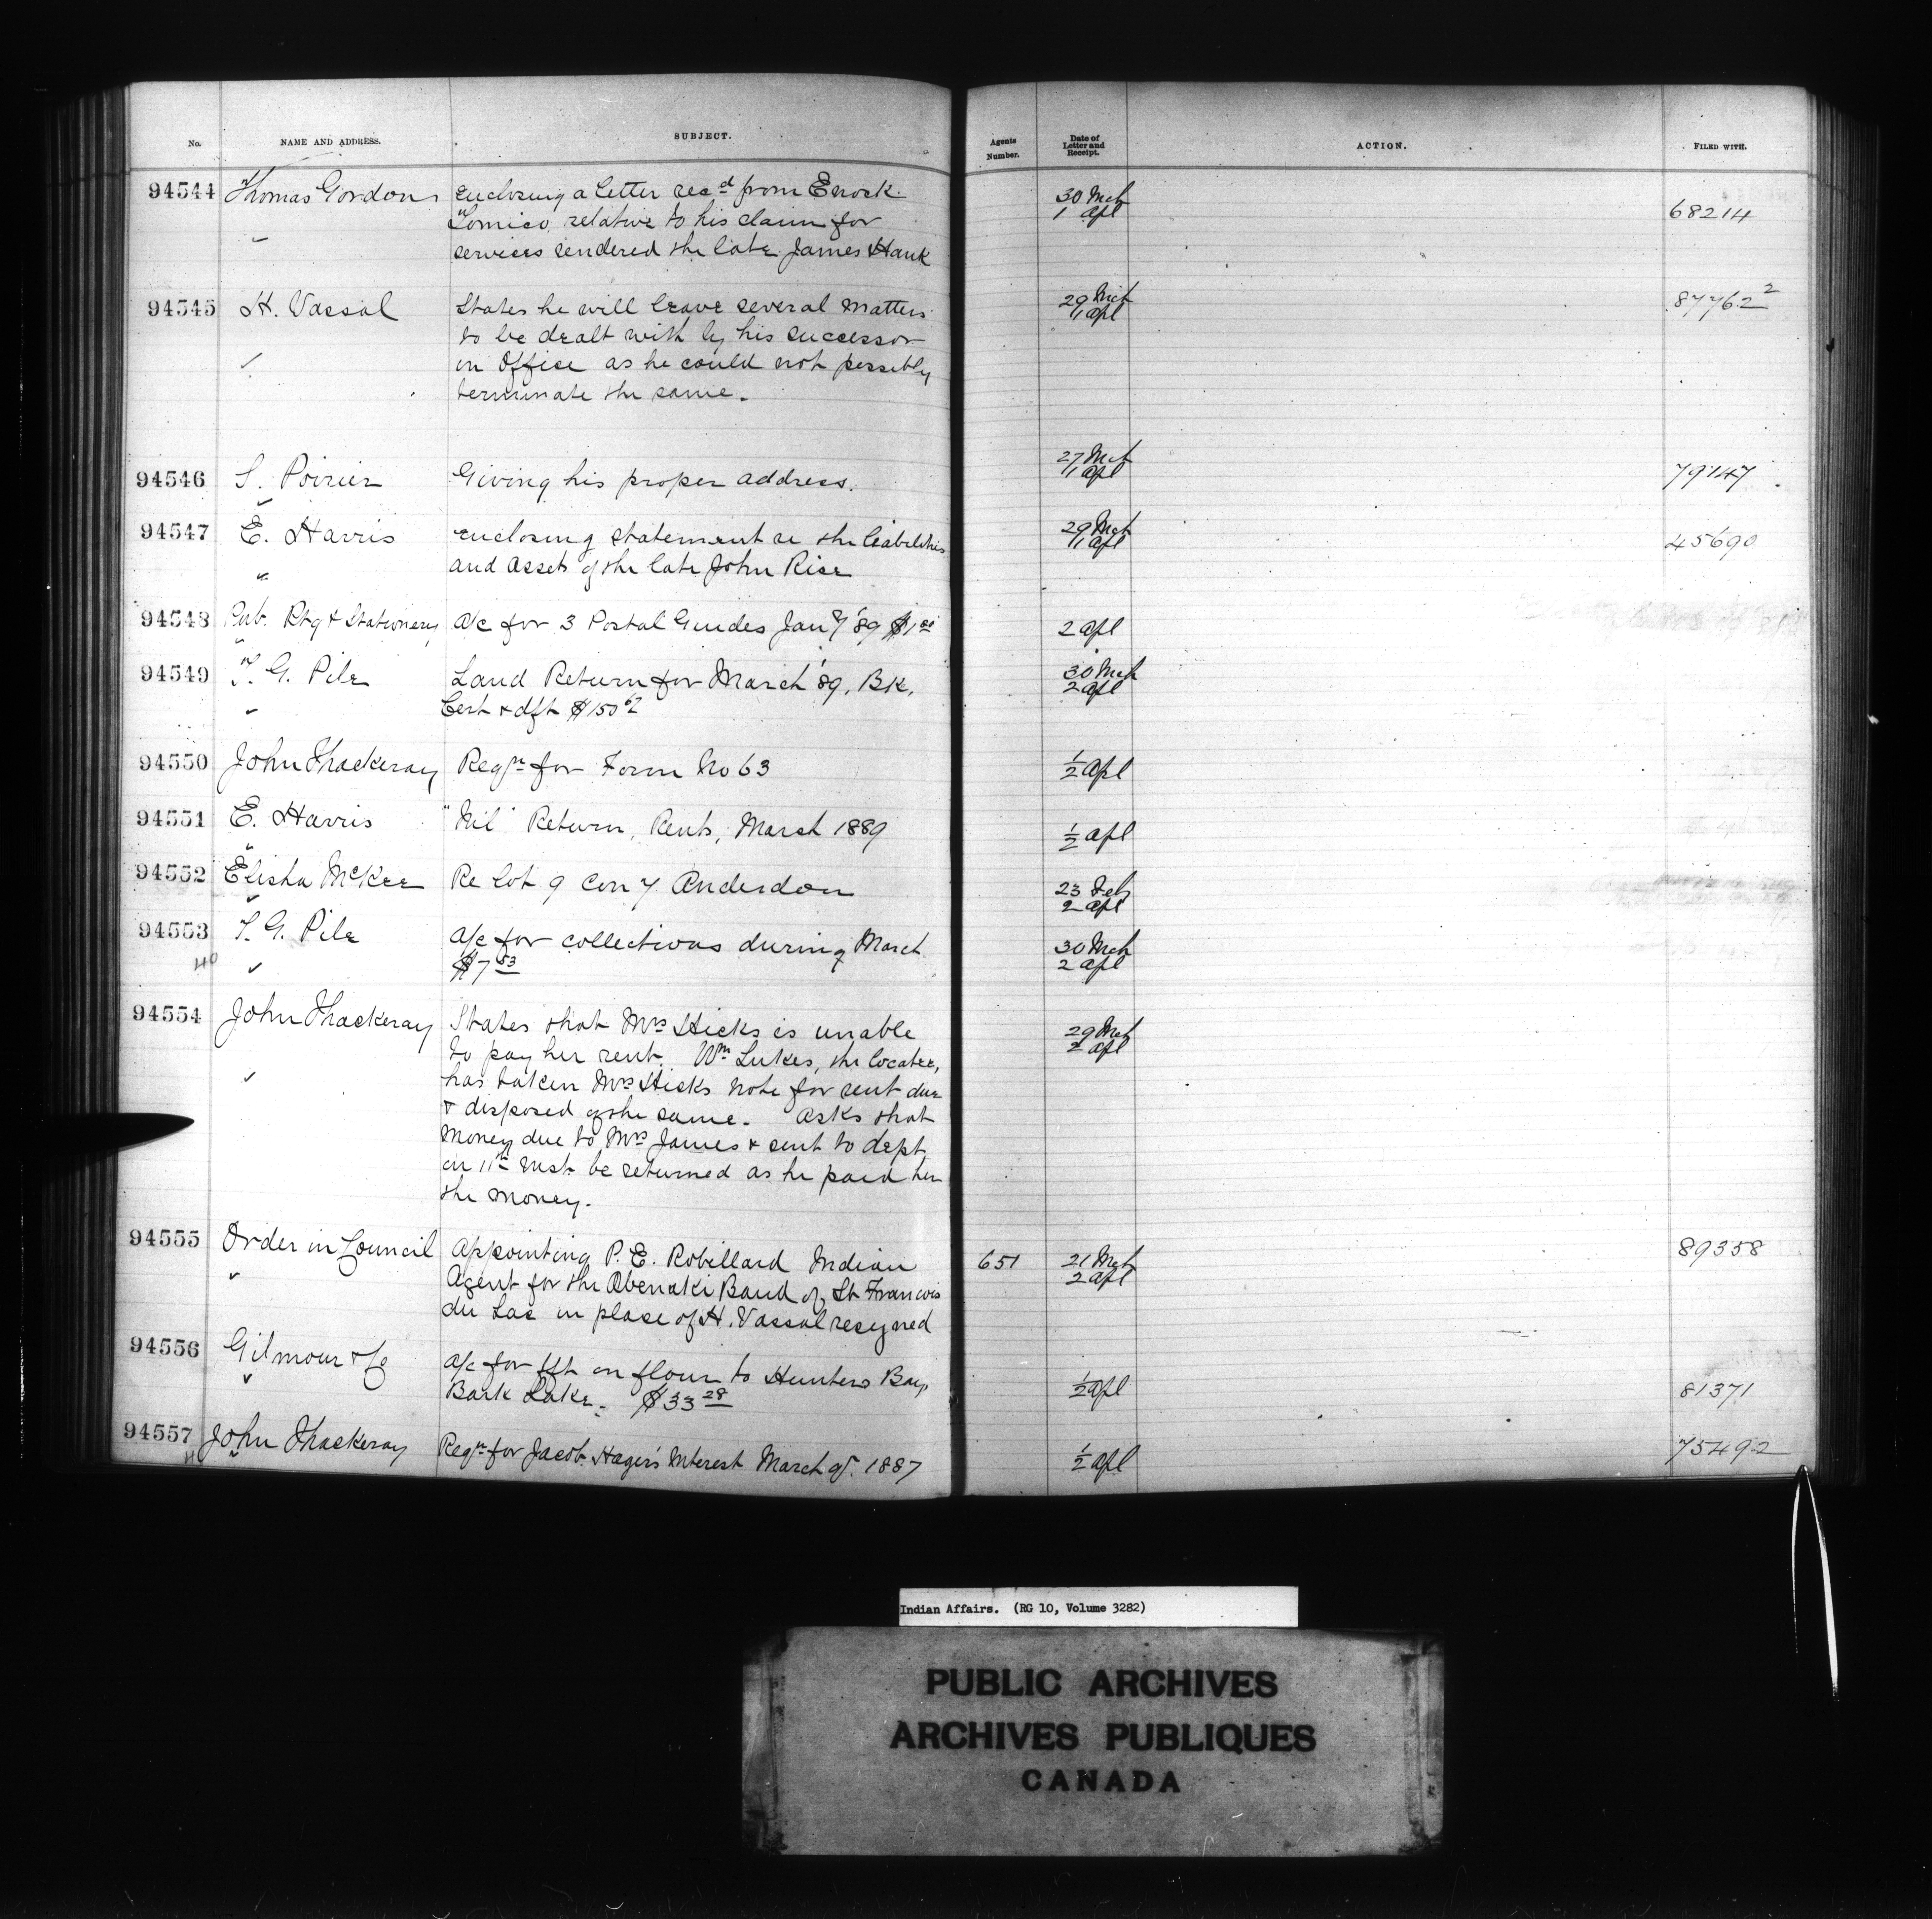 No. NAME AND ADDRESS. SUBJECT. Agents Number. Date of Letter and Receipt. ACTION. FILED WITH.
94544 Thomas Gordon enclosing a letter recd from Enock 30 Mch
relative to his claim for 1 Apl 68214
services rendered the late James Hank
94545 H. Vassal States he will leave several matters 29 Mch 87762 2
to be dealt with by his successor 1 Apl
in Office as he could not possibly
terminate the same.
94546 S. Poirier Giving his proper address. 27 Mch 1 Apl 79147
94547 E. Harris enclosing statement re the liabilities 29 Mch 1 Apl 45690
and assets of the late John Rise
94548 Pub. Ptg & Stationery a/c for 3 Postal Guides Jany '89 2 Apl
94549 T. G. Pile Land Return for March '89, Bk. 30 Mch
Cert & dft $150 62 2 Apl
94550 John Thackeray Reqn for Form No 63 1/2 Apl
94551 E. Harris "Nil" Return, Rents, March 1889 1/2 Apl
94552 Elisha McKee Re Lot 9 Con 7 Anderdon 23 Feb 2 Apl
94553 T. G. Pile a/c for collections during March 30 Mch
$7 53 2 Apl
94554 John Thackeray States that Mrs Hicks is unable 29 Mch
to pay her rent. Wm Lukes, the locatee, 2 Apl
has taken Mrs Hicks note for rent due
& disposed of the same. Asks that
money due to Mrs James & sent to dept
on 11th inst be returned as he paid her
the money.
94555 Order in Council Appointing P. E. Robillard Indian 651 21 Mch 89358
Agent for the Abenaki Band of St Francois 2 Apl
du Lac in place of H. Vassal resigned
94556 Gilmour & Co a/c for fft on flour to Hunters Bay,
Bark Lake. $33 28 1/2 Apl 81371
94557 John Thackeray Reqn for Jacob Hager's Interest March qr. 1887 1/2 Apl 75492
Indian Affairs. (RG 10, Volume 3282)
PUBLIC ARCHIVES
ARCHIVES PUBLIQUES
CANADA